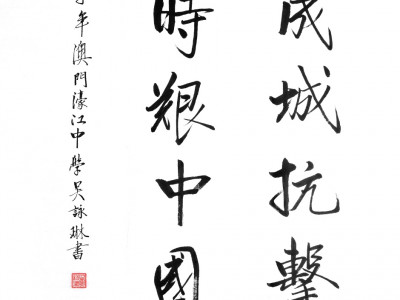 成城抗擊
時艱中國
年澳門濠江中學吳詠琳書